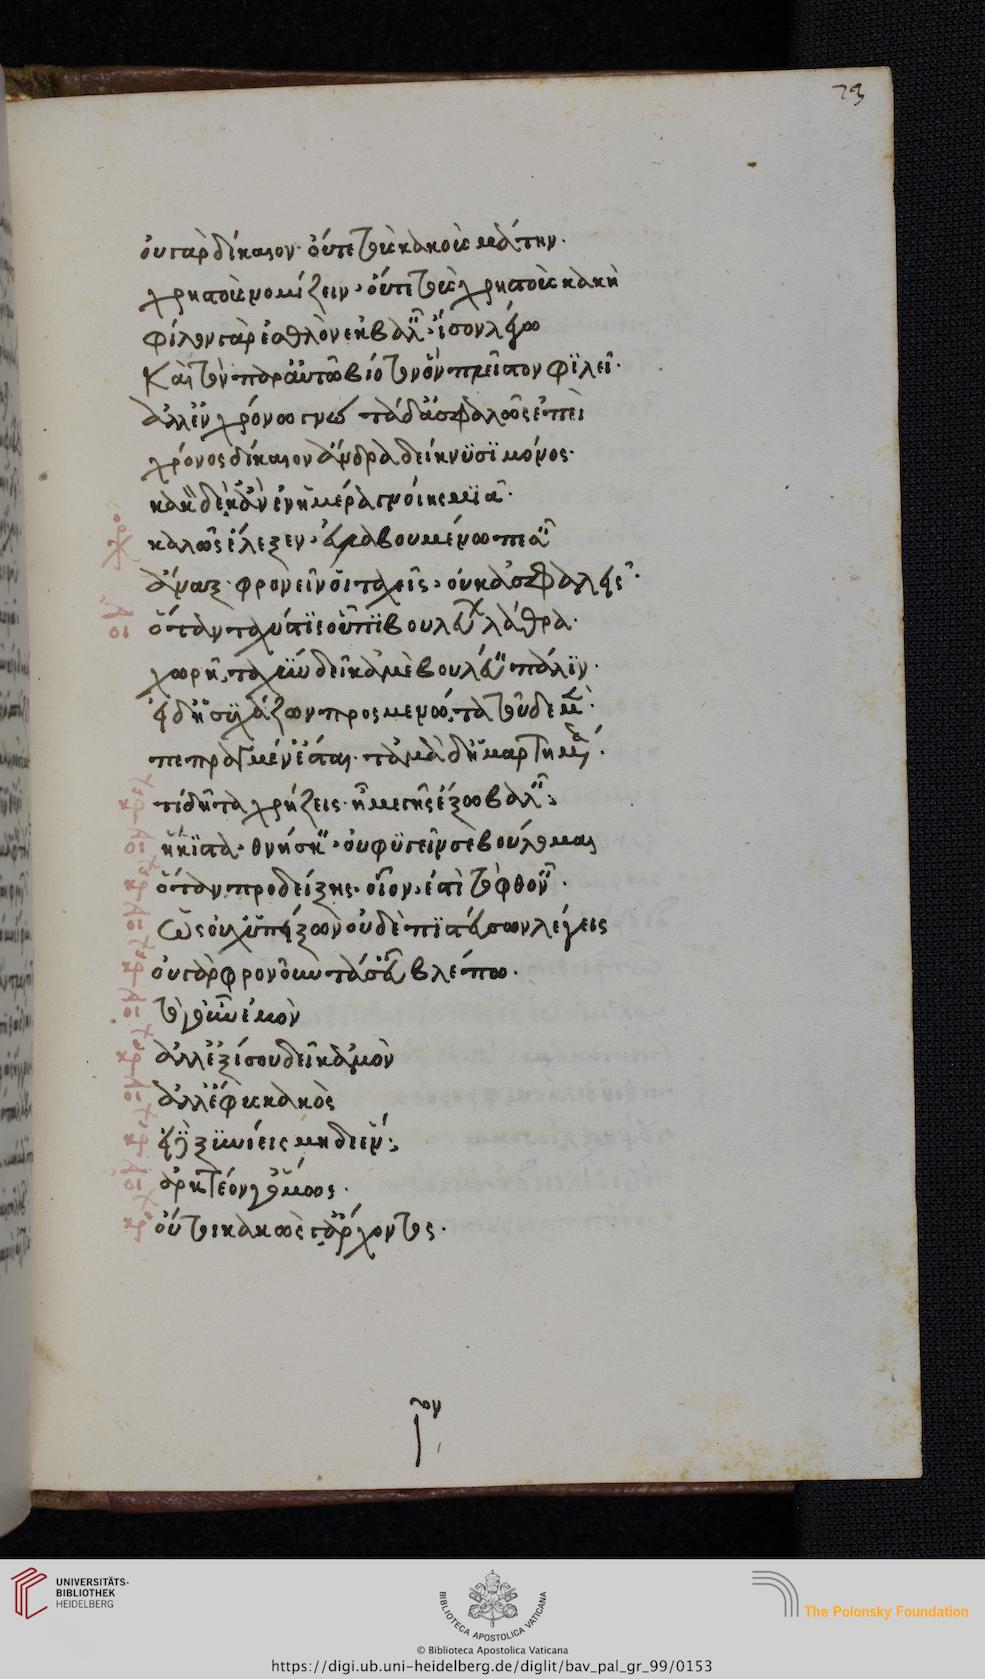 73
οὐ γὰρ δίκαιον· οὔτε τοὺς κακοὺς μάτην·
χρηστοὺς νομίζειν· οὔτε τοὺς χρηστοὺς κακούς
φίλον γὰρ ἐσθλὸν ἐκβαλεῖν· ἴσον λέγω
καὶ τὸν παρ' αὑτῷ βίοτον ὃν πλεῖστον φιλεῖ·
ἀλλ' ἐν χρόνῳ γνώσῃ τάδ' ἀσφαλῶς ἐπεὶ
χρόνος δίκαιον ἄνδρα δείκνυσι μόνος·
κακὸν δὲ κἂν ἐν ἡμέρᾳ γνοίης μιᾷ·
χρο
καλῶς ἔλεξεν· εὐλαβουμένῳ πεσεῖν
ἄναξ· φρονεῖν οἱ ταχεῖς· οὐκ ἀσφαλεῖς·
οι
ὅταν ταχύς τις οὑπιβουλεύων λάθρα·
χωρῇ, ταχὺν δεῖ κἀμὲ βουλεύειν πάλιν·
εἰ δ' ἡσυχάζων προσμενῶ, τὰ τοῦδε μὲν·
πεπραγμέν' ἔσται· τἀμὰ δ' ἡμαρτημένα·
κρ τί δῆτα χρῄζεις· ἦ με γῆς ἔξω βαλεῖν;
οι ἥκιστα· θνήσκειν· οὐ φυγεῖν σε βούλομαι
κρ ὅταν προδείξῃς· οἷόν ἐστι τὸ φθονεῖν·
οι ὡς οὐχ ὑπείξων οὐδὲ πιστεύσων λέγεις
κρ οὐ γὰρ φρονοῦντά σ' εὖ βλέπω·
οι τὸ γοῦν ἐμὸν
κρ ἀλλ' ἐξ ἴσου δεῖ κἀμὸν
οι ἀλλ' ἔφυς κακὸς
κρ εἰ δὲ ξυνίεις μηδέν;
οι ἀρκτέον γ' ὅμως·
κρ οὔτοι κακῶς γ' ἄρχοντος·
UNIVERSITÄTS-
BIBLIOTHEK
HEIDELBERG
BIBLIOTECA APOSTOLICA VATICANA
The Polonsky Foundation
© Biblioteca Apostolica Vaticana
https://digi.ub.uni-heidelberg.de/diglit/bav_pal_gr_99/0153